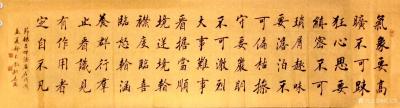 氣象要高
曠不可踈
狂心思要
縝密不可
瑣屑趣味
要澹泊不
可偏枯操
守要嚴明
不可激烈
大事難事
看擔當順
境逆境看
襟度臨喜
臨怒看涵
養群行群
止看識見
有作用者
定自不凡